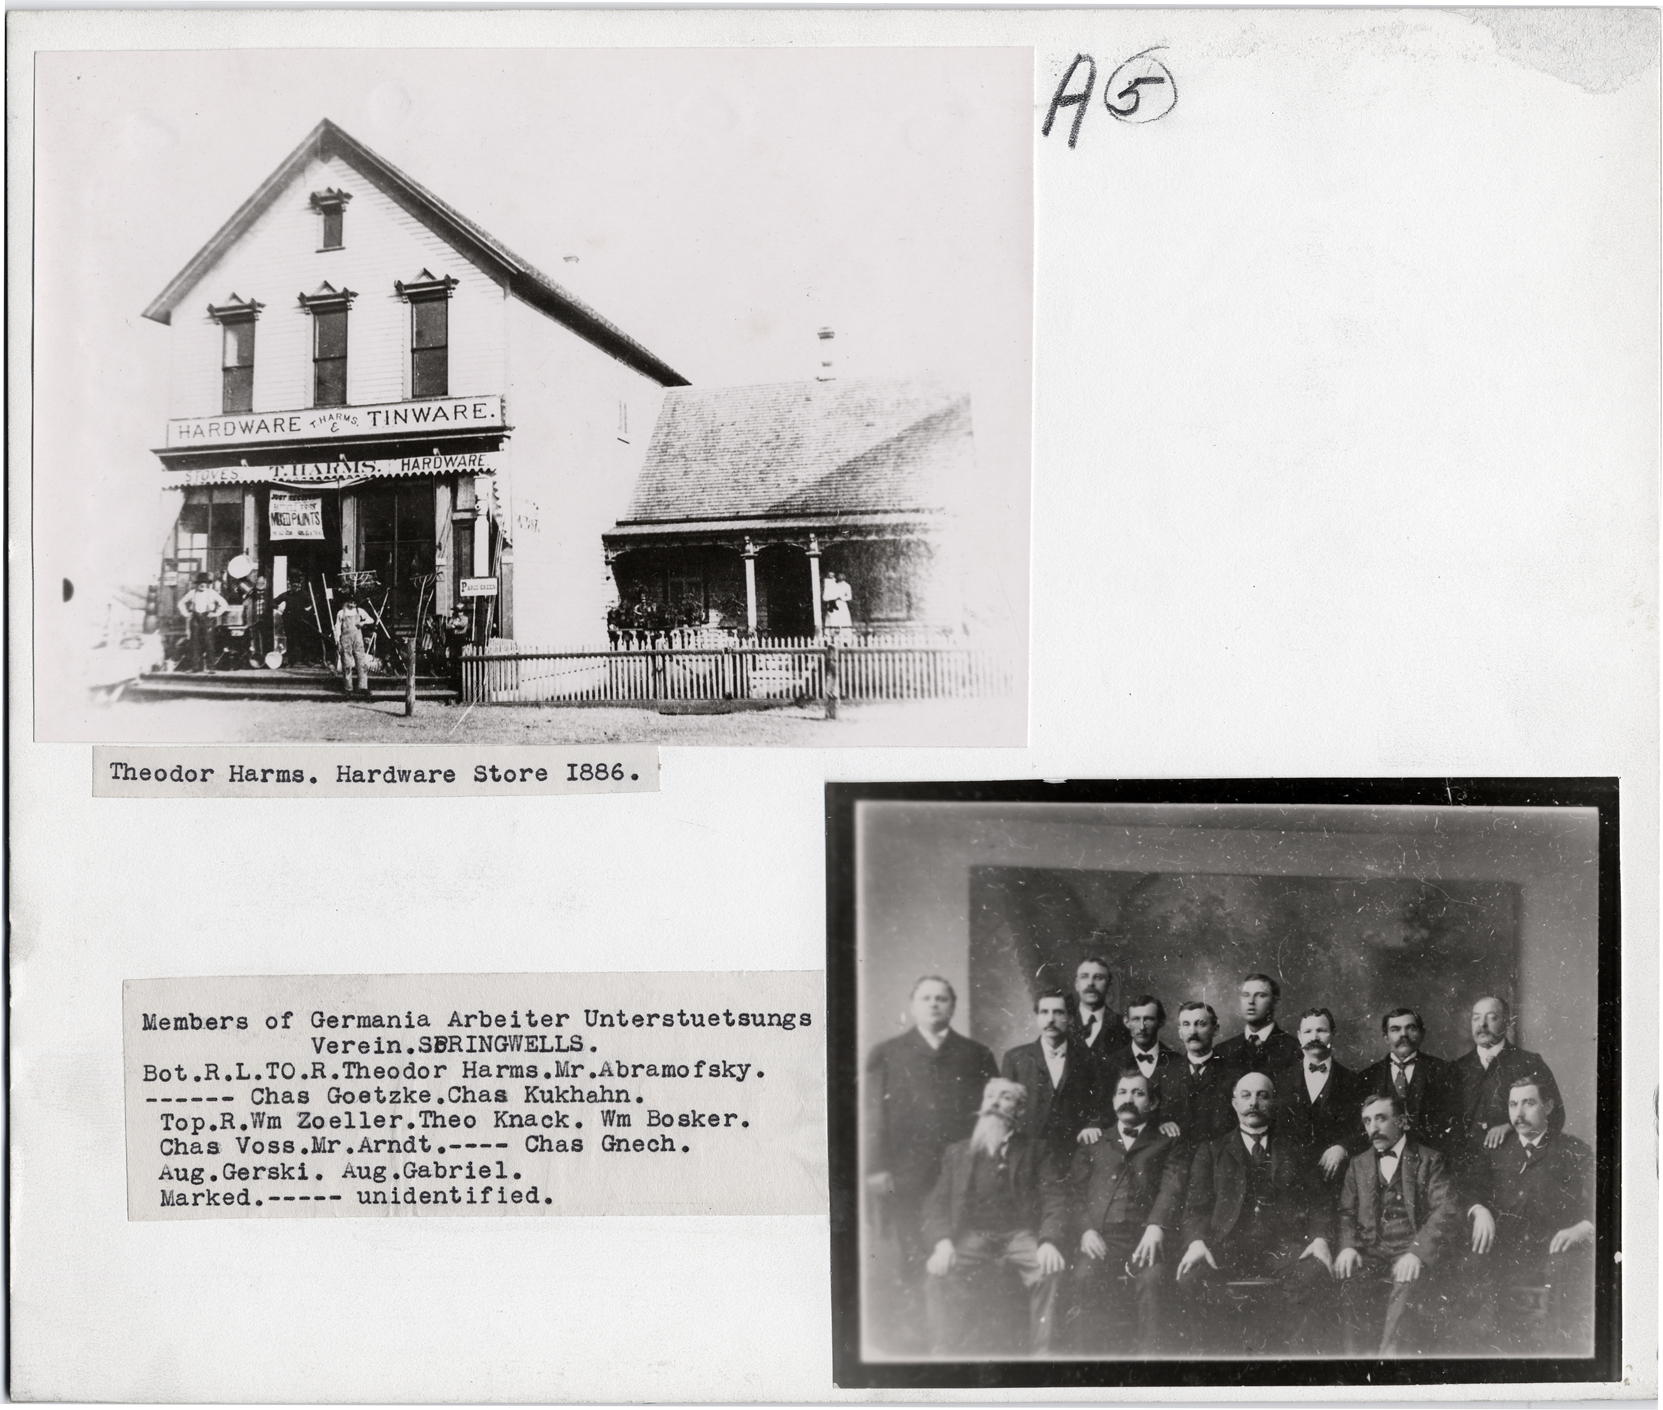 A 5
HARDWARE T. HARMS. & TINWARE.
STOVES T. HARMS. HARDWARE
JUST RECEIVED
MIXED PAINTS
PARIS GREEN
Theodor Harms. Hardware Store I886.
Members of Germania Arbeiter Unterstuetsungs
Verein.SPRINGWELLS.
Bot.R.L.TO.R.Theodor Harms.Mr.Abramofsky.
------ Chas Goetzke.Chas Kukhahn.
Top.R.Wm Zoeller.Theo Knack. Wm Bosker.
Chas Voss.Mr.Arndt.---- Chas Gnech.
Aug.Gerski. Aug.Gabriel.
Marked.----- unidentified.